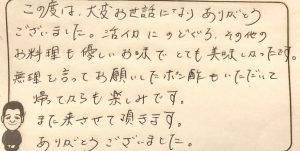 この度は、大変お世話になり ありがとう
ございました。活イカにのどぐろ、その他の
お料理も優しいお味でとても美味しかったです。
無理を言ってお願いしたポン酢もいただいて
帰ってからも楽しみです。
また来させて頂きます。
ありがとうございました。